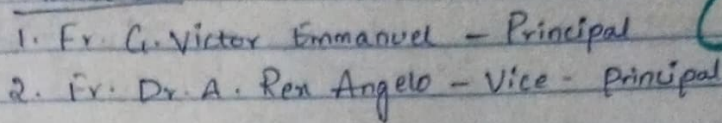 1. Fr. G. Victor Emmanuel - Principal
2. Fr. Dr. A. Rex Angelo - Vice - Principal